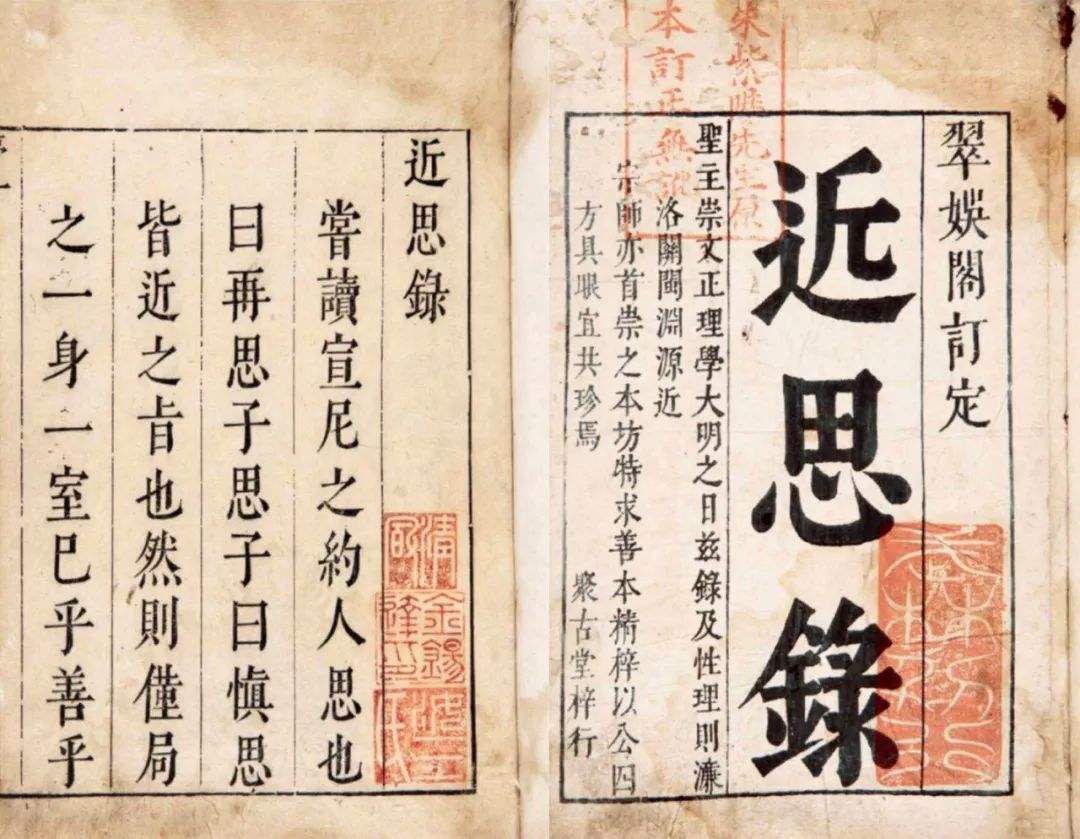 翠娛閣訂定
近思錄
聖主崇文正理學大明之日兹錄及性理則濂
洛關閩淵源近
宗師亦首崇之本坊特求善本精梓以公四
方具眼宜共珍焉 聚古堂梓行
朱紫陽先生原
本訂正無訛
近思錄
嘗讀宣尼之約人思也
曰再思子思子曰愼思
皆近之旨也然則僅局
之一身一室已乎善乎